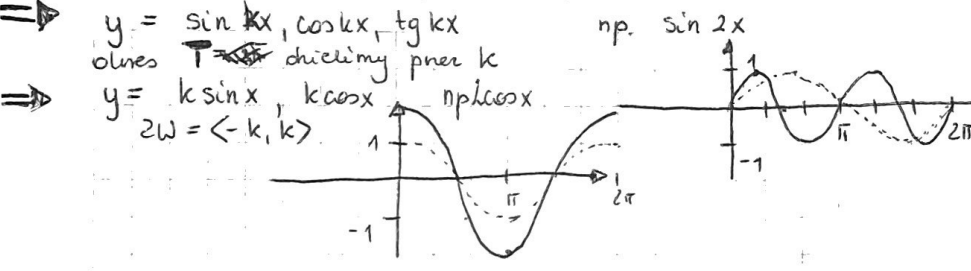 ⇒ y = sin kx, cos kx, tg kx
np. sin 2x
okres T dzielimy przez k
⇒ y = k sin x, k cos x
np 2cos x
ZW = <-k, k>
1
-1
π
2π
1
-1
π
2π